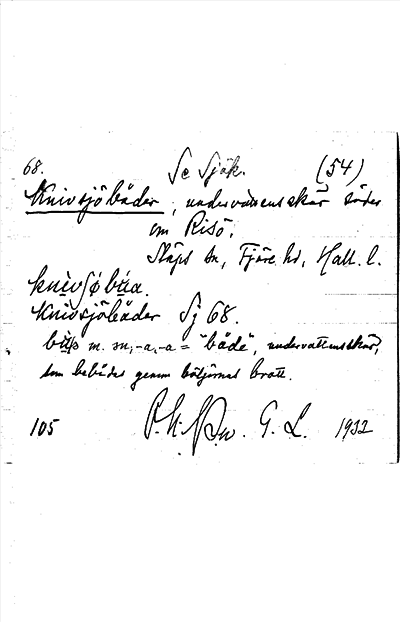 68. Se Sjök. (54)
Knivsjöbåder, undervattensskär söder
om Risö.
Släps sn, Fjäre hd, Hall. l.
knivsjøbåa.
Knivsjöbåder Sj 68.
m. sn, -a, -a = "både", undervattensskär,
som bebådas genom böljornas brott.
105 G. L. 1932